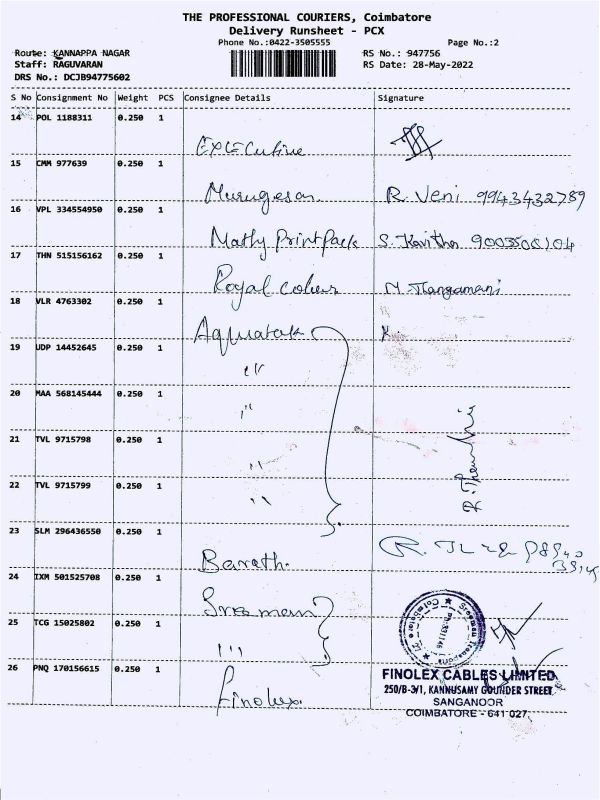 THE PROFESSIONAL COURIERS, Coimbatore
Delivery Runsheet - PCX
Phone No.:0422-3505555 Page No.:2
Route: KANNAPPA NAGAR RS No.: 947756
Staff: RAGUVARAN RS Date: 28-May-2022
DRS No.: DCJB94775602
S No Consignment No Weight PCS Consignee Details Signature
14 POL 1188311 0.250 1
Executive
15 CMM 977639 0.250 1
Murugesan R. Veni 9943432789
16 VPL 334554950 0.250 1
Mathy Printpack S. Kavitha
17 THN 515156162 0.250 1
Royal colour
18 VLR 4763302 0.250 1
Aquatak K.
19 UDP 14452645 0.250 1
"
20 MAA 568145444 0.250 1
"
21 TVL 9715798 0.250 1
"
22 TVL 9715799 0.250 1
"
23 SLM 296436550 0.250 1
Barath.
24 IXM 501525708 0.250 1
Sreeman
25 TCG 15025802 0.250 1
"
26 PNQ 170156615 0.250 1
Finolex
FINOLEX CABLES LIMITED
250/B-3/1, KANNUSAMY GOUNDER STREET,
SANGANOOR
COIMBATORE - 641 027.